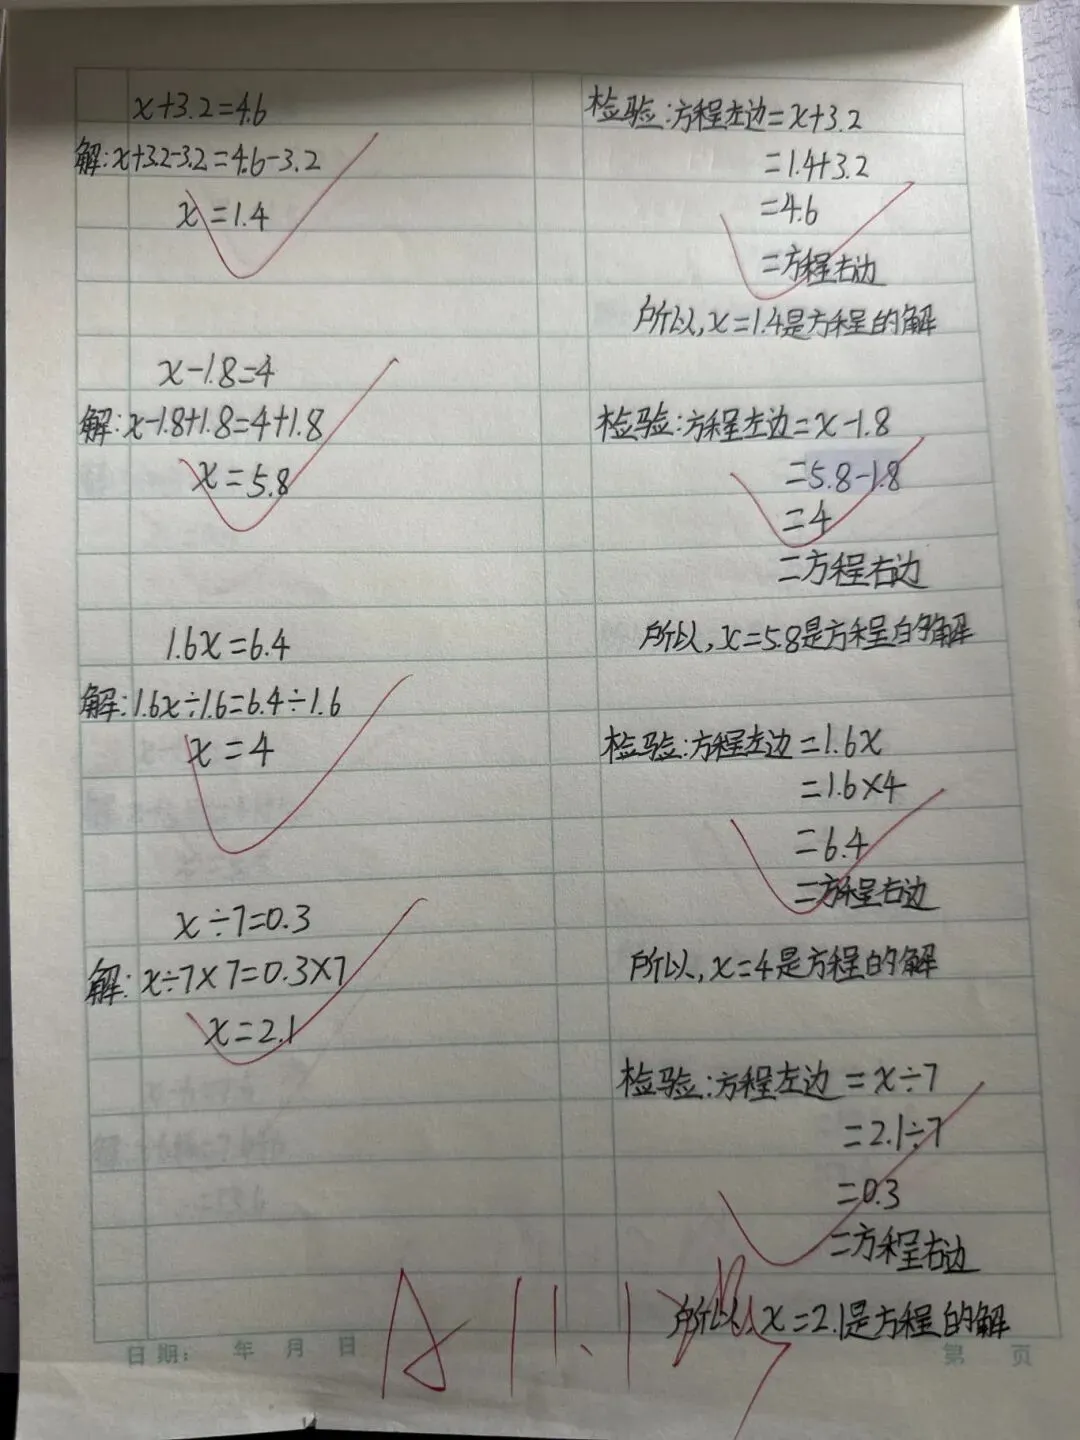 x+3.2=4.6
解:x+3.2-3.2=4.6-3.2
x=1.4
x-1.8=4
解:x-1.8+1.8=4+1.8
x=5.8
1.6x=6.4
解:1.6x÷1.6=6.4÷1.6
x=4
x÷7=0.3
解:x÷7×7=0.3×7
x=2.1
检验:方程左边=x+3.2
=1.4+3.2
=4.6
=方程右边
所以,x=1.4是方程的解
检验:方程左边=x-1.8
=5.8-1.8
=4
=方程右边
所以,x=5.8是方程的解
检验:方程左边=1.6x
=1.6×4
=6.4
=方程右边
所以,x=4是方程的解
检验:方程左边=x÷7
=2.1÷7
=0.3
=方程右边
所以,x=2.1是方程的解
A 11.1
日期: 年 月 日
第 页